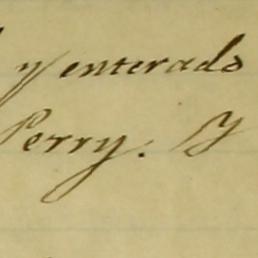 y enterado
Perry. Y